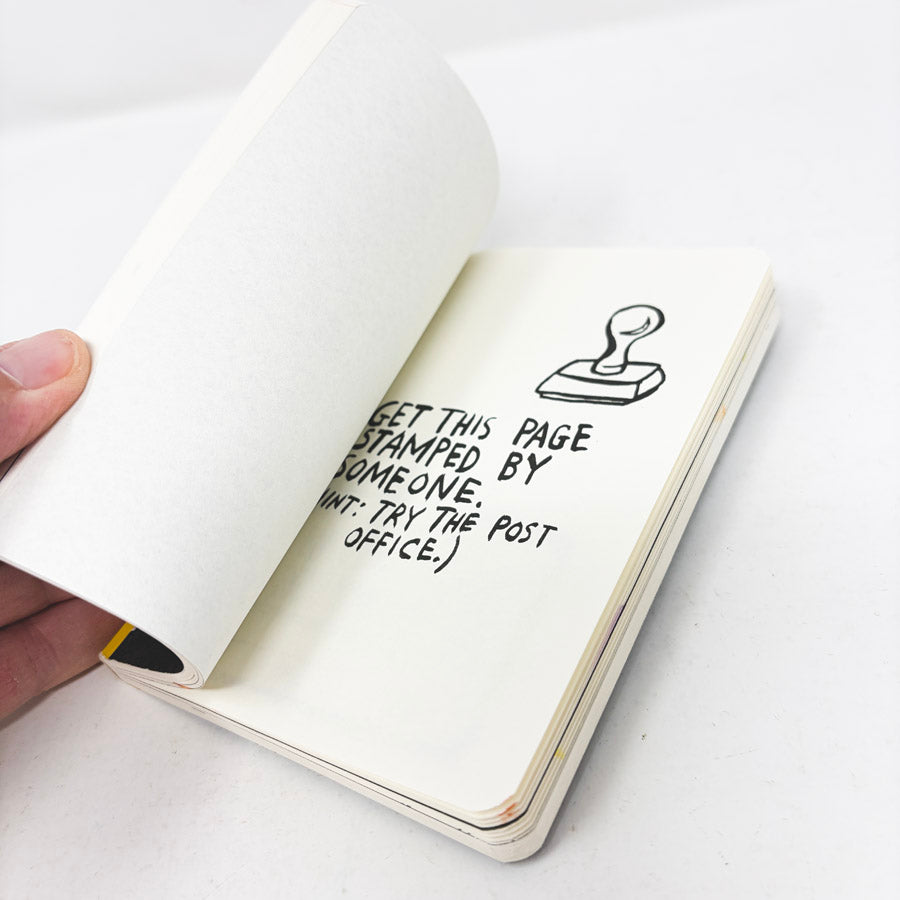 GET THIS PAGE
STAMPED BY
SOMEONE.
HINT: TRY THE POST
OFFICE.)